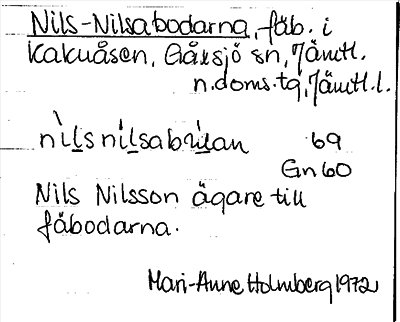 Nils-Nilsabodarna, fäb. i
Kakuåsen, Gåxsjö sn, Jämtl.
n. doms. tg, Jämtl. l.
69
Gn 60
Nils Nilsson ägare till
fäbodarna.
Mari-Anne Holmberg 1972